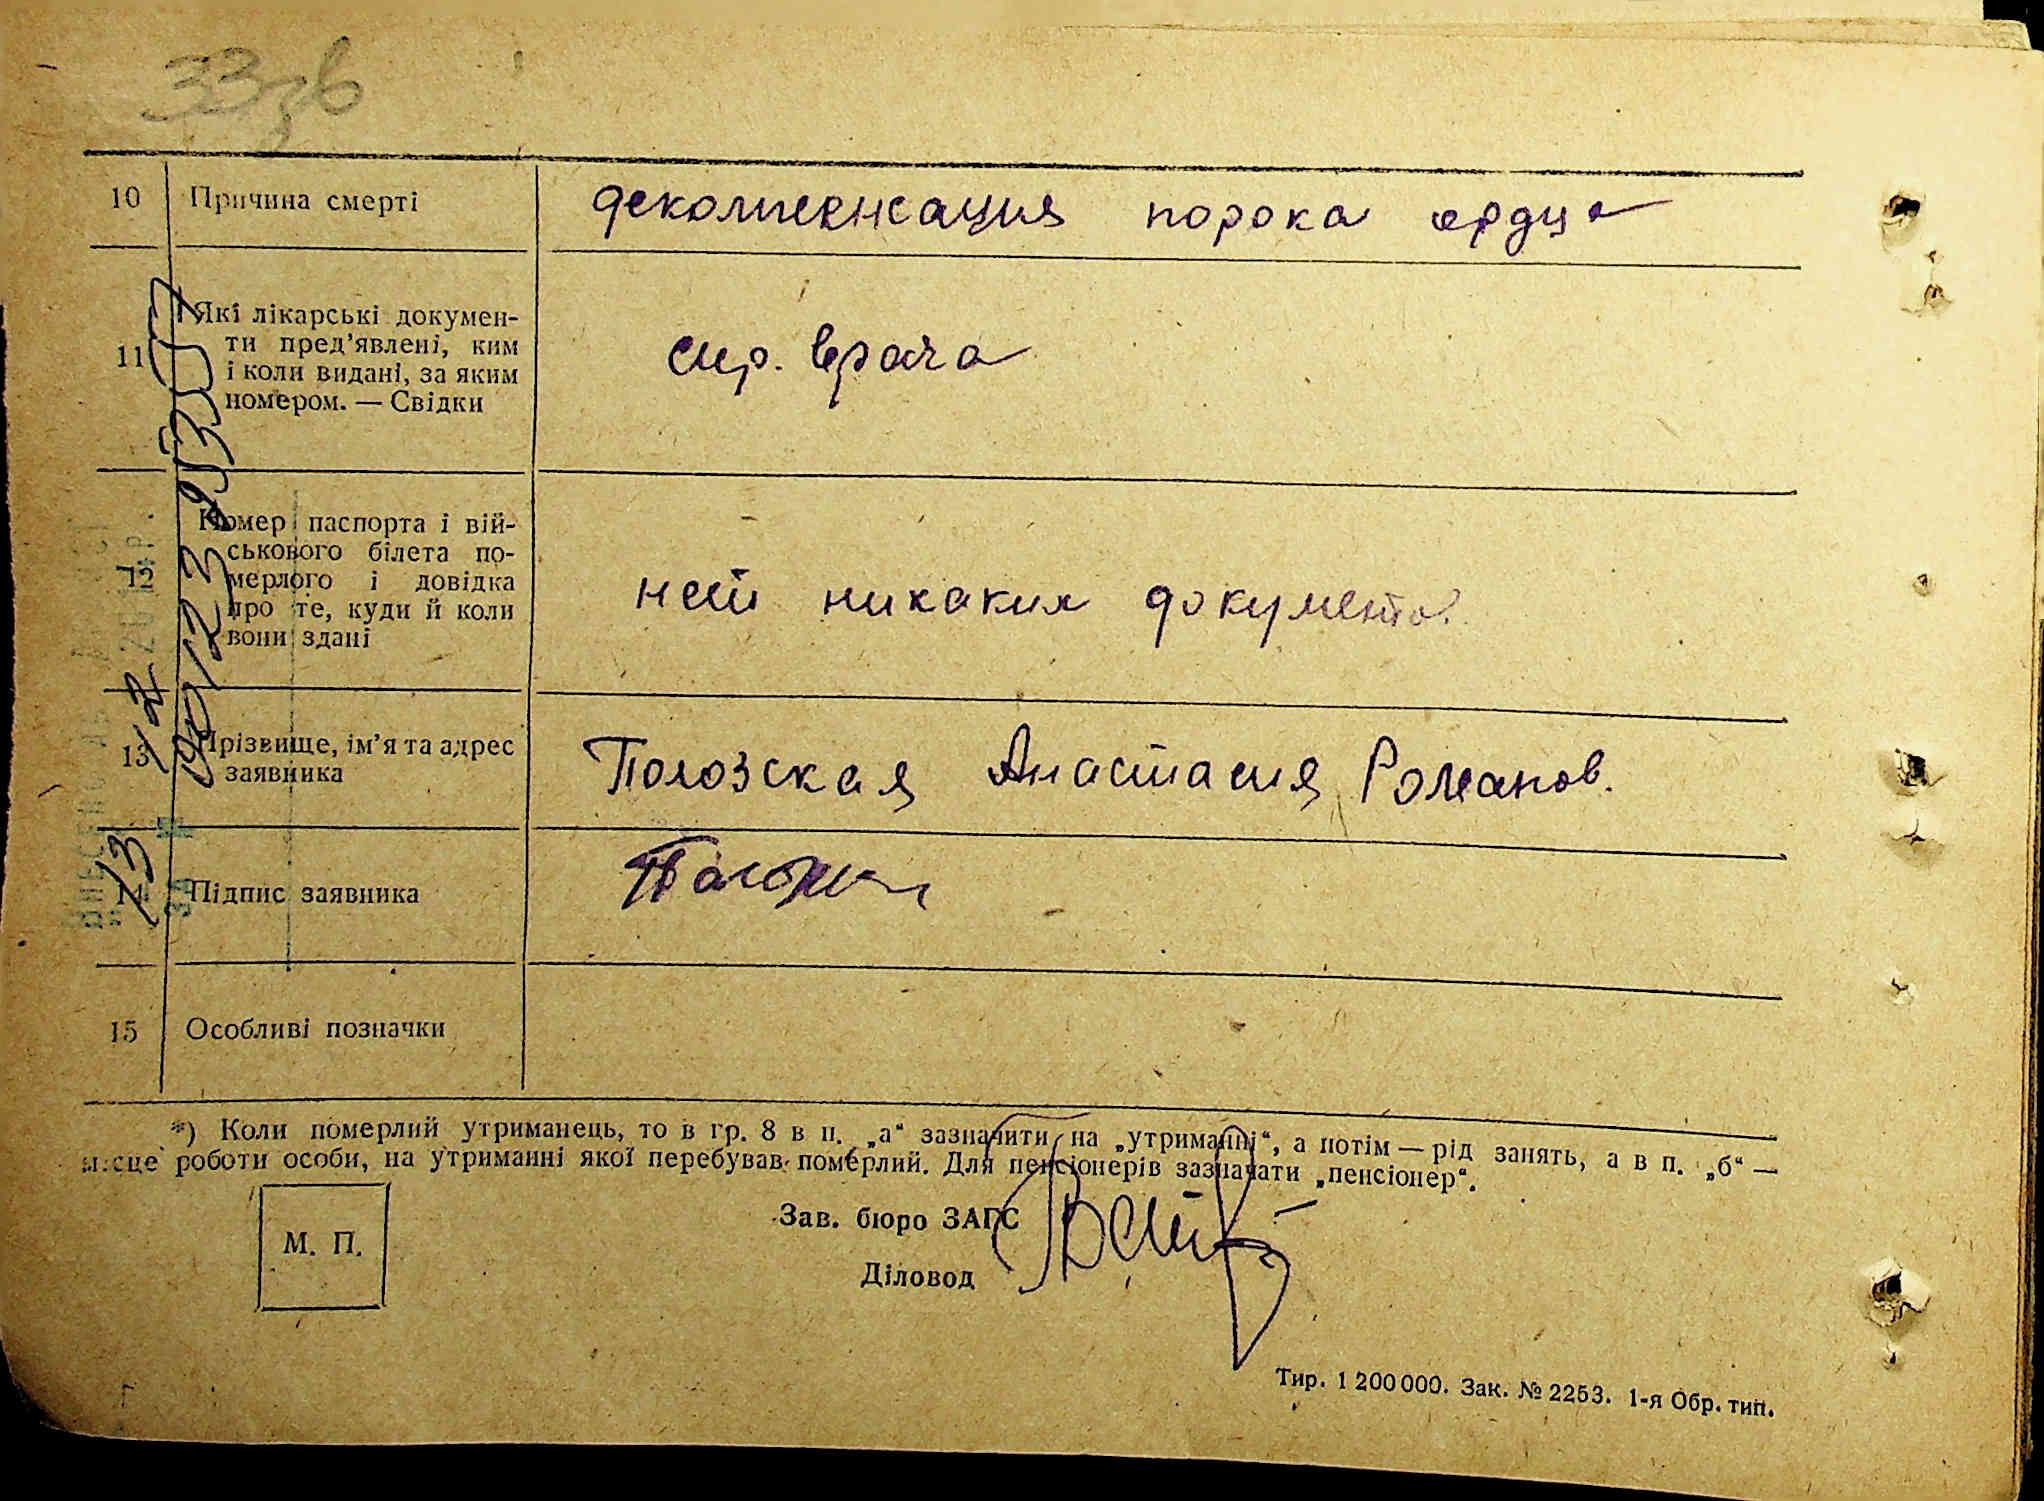 33зв
10 Причина смерті декомпенсация порока сердца
11 Які лікарські докумен-
ти пред’явлені, ким
і коли видані, за яким
номером. — Свідки
спр. врача
12 Номер паспорта і вій-
ськового білета по-
мерлого і довідка
про те, куди й коли
вони здані
нет никаких документов.
13 Прізвище, ім’я та адрес
заявника
Полозская Анастасия Романов.
14 Підпис заявника
15 Особливі позначки
*) Коли померлий утриманець, то в гр. 8 в п. „а“ зазначити на „утриманні“, а потім — рід занять, а в п. „б“ —
місце роботи особи, на утриманні якої перебував померлий. Для пенсіонерів зазначати „пенсіонер“.
М. П.
Зав. бюро ЗАГС
Діловод
Тир. 1 200 000. Зак. № 2253. 1-я Обр. тип.